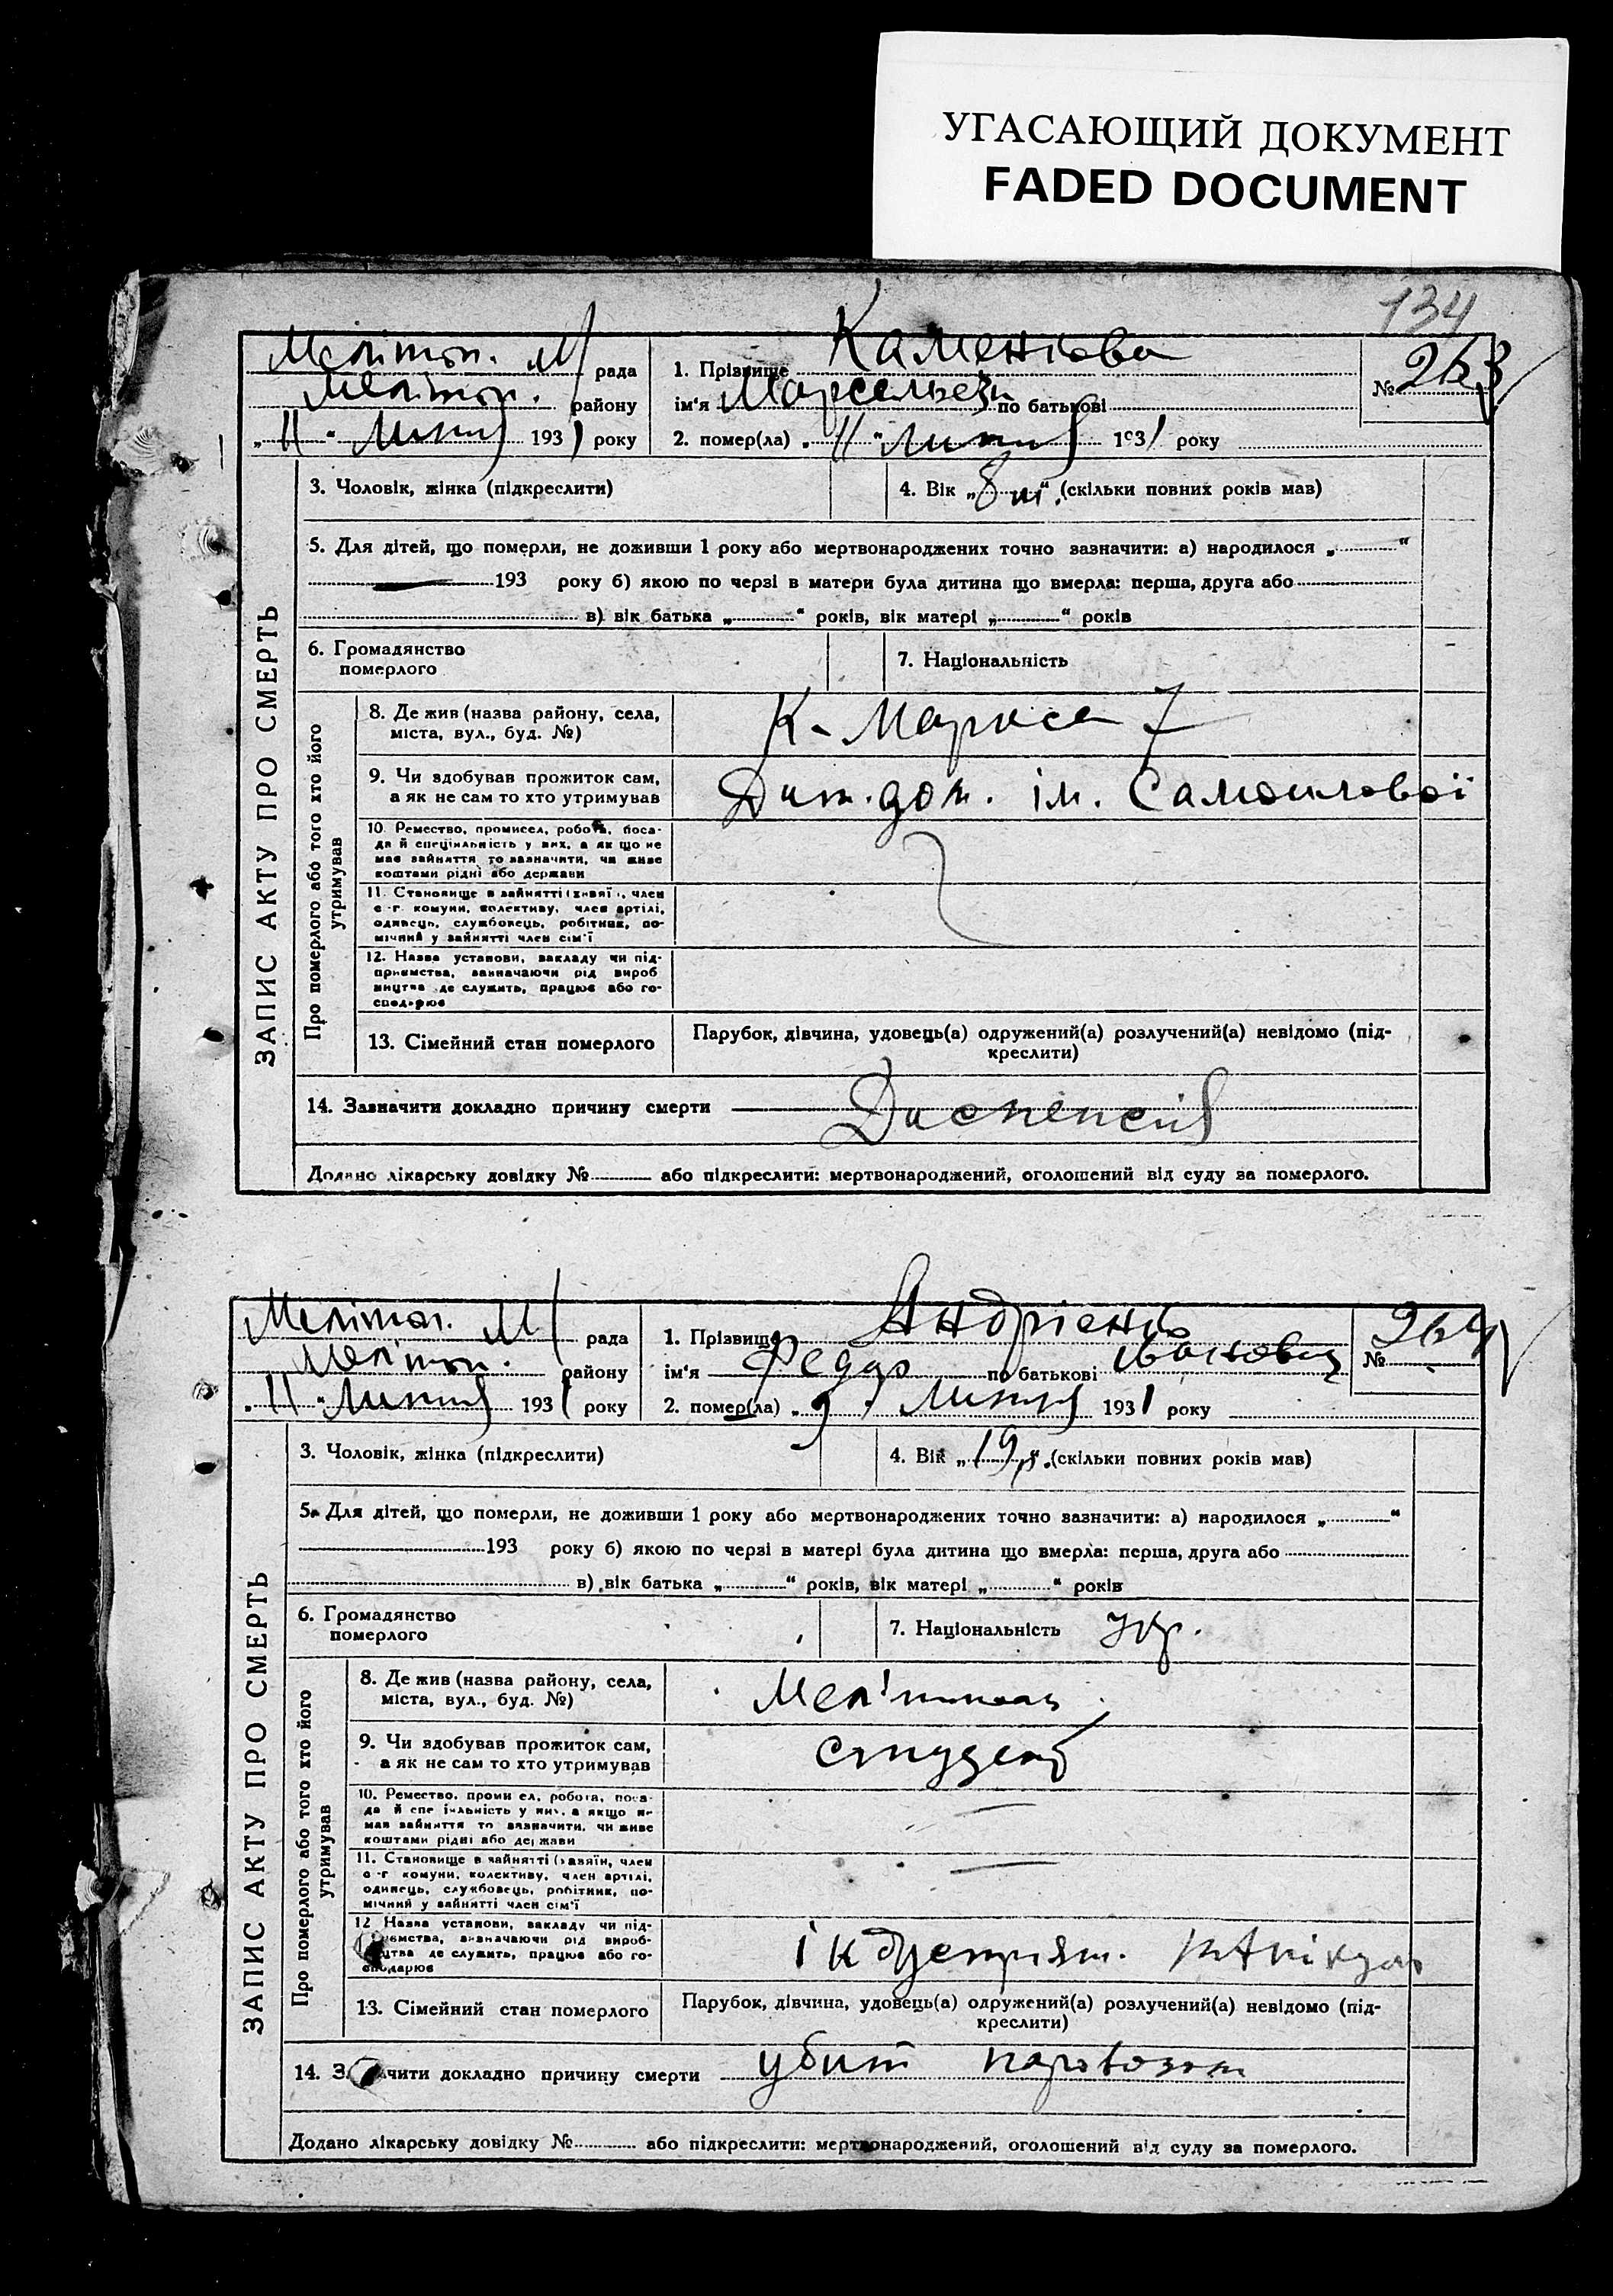 УГАСАЮЩИЙ ДОКУМЕНТ
FADED DOCUMENT
134
Меліто­п. М рада
Мелітоп. району
„ 11 “ Липня 1931 року
1. Прізвище Каменкова
ім'я по батькові
№ 263
2. помер(ла) „ 11 “ Липня 1931 року
3. Чоловік, жінка (підкреслити)
4. Вік „ 8 м. “ (скільки повних років мав)
5. Для дітей, що померли, не доживши 1 року або мертвонароджених точно зазначити: а) народилося „ “
193 року б) якою по черзі в матери була дитина що вмерла: перша, друга або
в) вік батька „ “ років, вік матері „ “ років
6. Громадянство
померлого
7. Національність
ЗАПИС АКТУ ПРО СМЕРТЬ
Про померлого або того хто його
утримував
8. Де жив (назва району, села,
міста, вул., буд. №)
К. Маркса 7
9. Чи здобував прожиток сам,
а як не сам то хто утримував
Дит. дом. ім. Самойлової
10. Ремество, промисел, робота, поса-
да й спеціяльність у них, а як що не
має зайняття то зазначити, чи живе
коштами рідні або держави
11. Становище в зайнятті (хазяїн, член
с-г. комуни, колективу, член артілі,
одинець, службовець, робітник, по-
мічний у зайнятті член сім'ї
12. Назва установи, закладу чи під-
приємства, зазначаючи рід вироб
ництва де служить, працює або го-
сподарює
13. Сімейний стан померлого
Парубок, дівчина, удовець(а) одружений(а) розлучений(а) невідомо (під-
креслити)
14. Зазначити докладно причину смерти Диспепсія
Додано лікарську довідку № або підкреслити: мертвонароджений, оголошений від суду за померлого.
Мелітоп. М рада
Мелітоп. району
„ 11 “ Липня 1931 року
1. Прізвище Андрієнко
ім'я Федор по батькові Іванович
№ 264
2. помер(ла) „ 9 “ Липня 1931 року
3. Чоловік, жінка (підкреслити)
4. Вік „ 19 р. “ (скільки повних років мав)
5. Для дітей, що померли, не доживши 1 року або мертвонароджених точно зазначити: а) народилося „ “
193 року б) якою по черзі в матері була дитина що вмерла: перша, друга або
в) вік батька „ “ років, вік матері „ “ років
6. Громадянство
померлого
7. Національність Укр.
ЗАПИС АКТУ ПРО СМЕРТЬ
Про померлого або того хто його
утримував
8. Де жив (назва району, села,
міста, вул., буд. №)
Мелітополь
9. Чи здобував прожиток сам,
а як не сам то хто утримував
студент
10. Ремество, промисел, робота, поса-
да й спеціяльність у них, а якщо не
має зайняття то зазначити, чи живе
коштами рідні або держави
11. Становище в зайнятті (хазяїн, член
с-г комуни, колективу, член артілі,
одинець, службовець, робітник, по-
мічний у зайнятті член сім'ї
12 Назва установи, закладу чи під-
приємства, зазначаючи рід вироб-
ництва де служить, працює або го-
сподарює
13. Сімейний стан померлого
Парубок, дівчина, удовець(а) одружений(а) розлучений(а) невідомо (під-
креслити)
14. Зазначити докладно причину смерти убит паровозом
Додано лікарську довідку № або підкреслити: мертвонароджений, оголошений від суду за померлого.